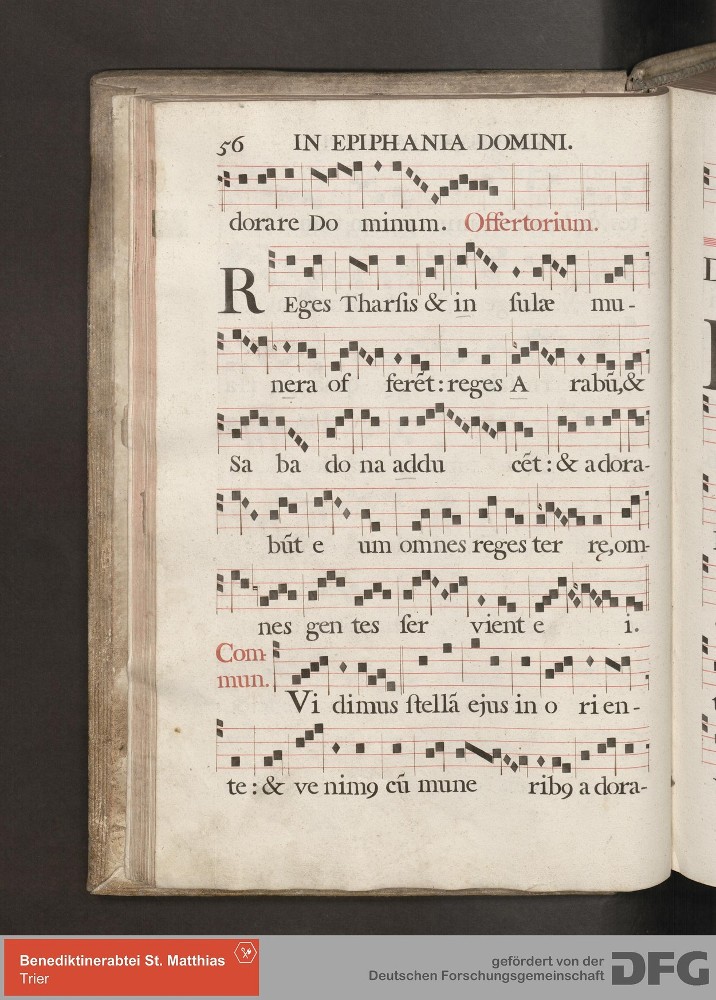 56 IN EPIPHANIA DOMINI.
dorare Do minum. Offertorium.
REges Tharſis & in ſulæ mu-
nera of ferẽt: reges A rabũ, &
Sa ba do na addu cẽt: & adora-
bũt e um omnes reges ter rę, om-
nes gen tes ſer vient e i.
Com-
mun.
Vi dimus ſtellã ejus in o rien-
te: & ve nimꝯ cũ mune ribꝯ adora-
Benediktinerabtei St. Matthias
Trier
gefördert von der
Deutschen Forschungsgemeinschaft
DFG